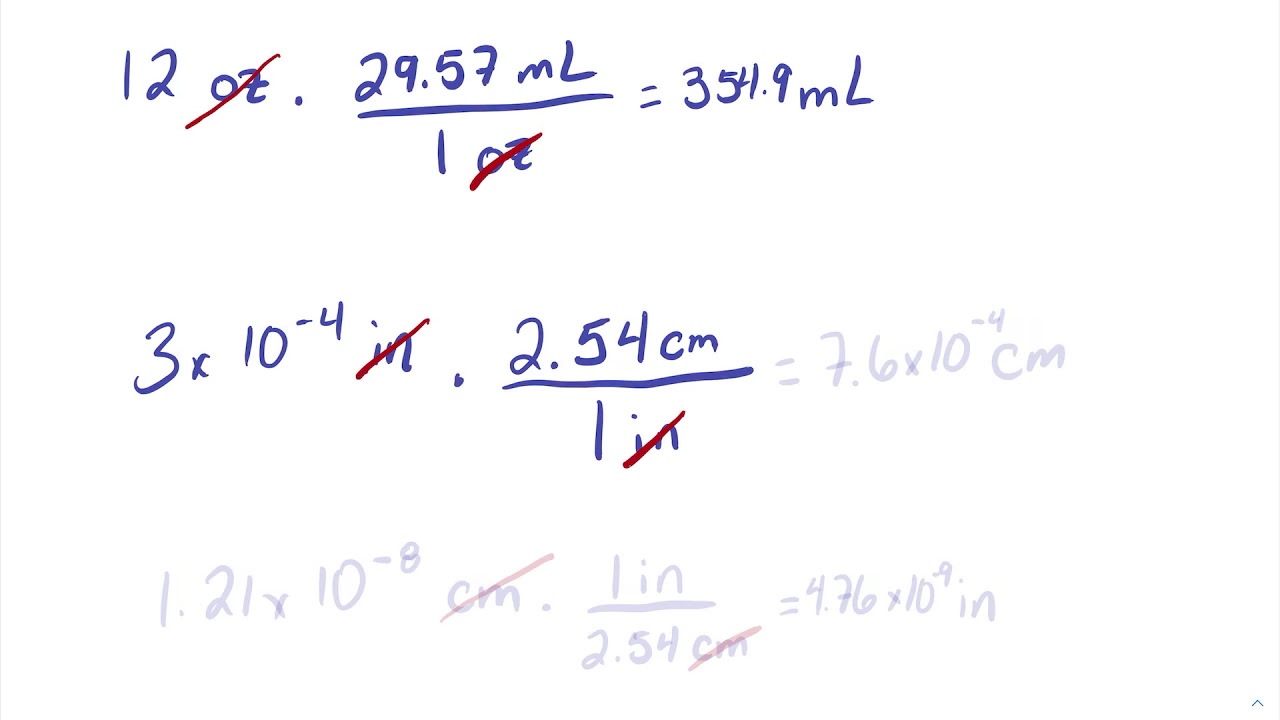 12 oz . 29.57 mL / 1 oz = 354.9 mL
3 x 10^-4 in . 2.54 cm / 1 in = 7.6 x 10^-4 cm
1.21 x 10^-8 cm . 1 in / 2.54 cm = 4.76 x 10^-9 in